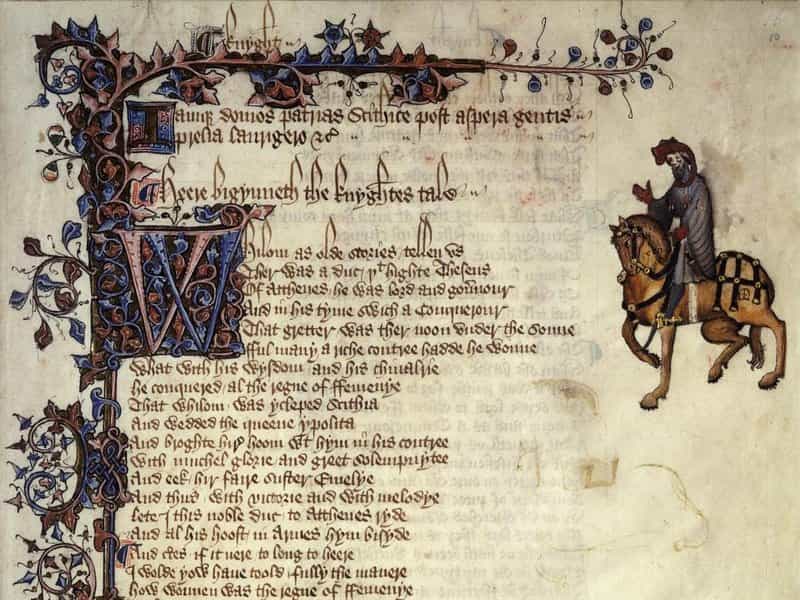 Knyght
Iamq; domos patrias Scithice post aspera gentis
prelia laurigero &c
Heere bigynneth the knyghtes tale
Whilom as olde stories tellen vs
Ther was a duc þt highte Theseus
Of Atthenes he was lord and gouernour
And in his tyme swich a Conquerour
That gretter was ther noon vnder the sonne
fful many a riche contree hadde he wonne
What with his wysdom and his chiualrie
he conquered al the regne of ffemenye
That whilom was ycleped Scithia
and wedded the queene ypolita
And broghte hir hoom wt hym in his contree
With muchel glorie and greet solempnytee
And eek hir faire suster Emelye
And thus with victorie and with melodye
lete I this noble duc to Atthenes ryde
And al his hoost in armes hym bisyde
And certes if it nere to long to heere
I wolde yow haue toold fully the manere
how wonnen was the regne of ffemenye